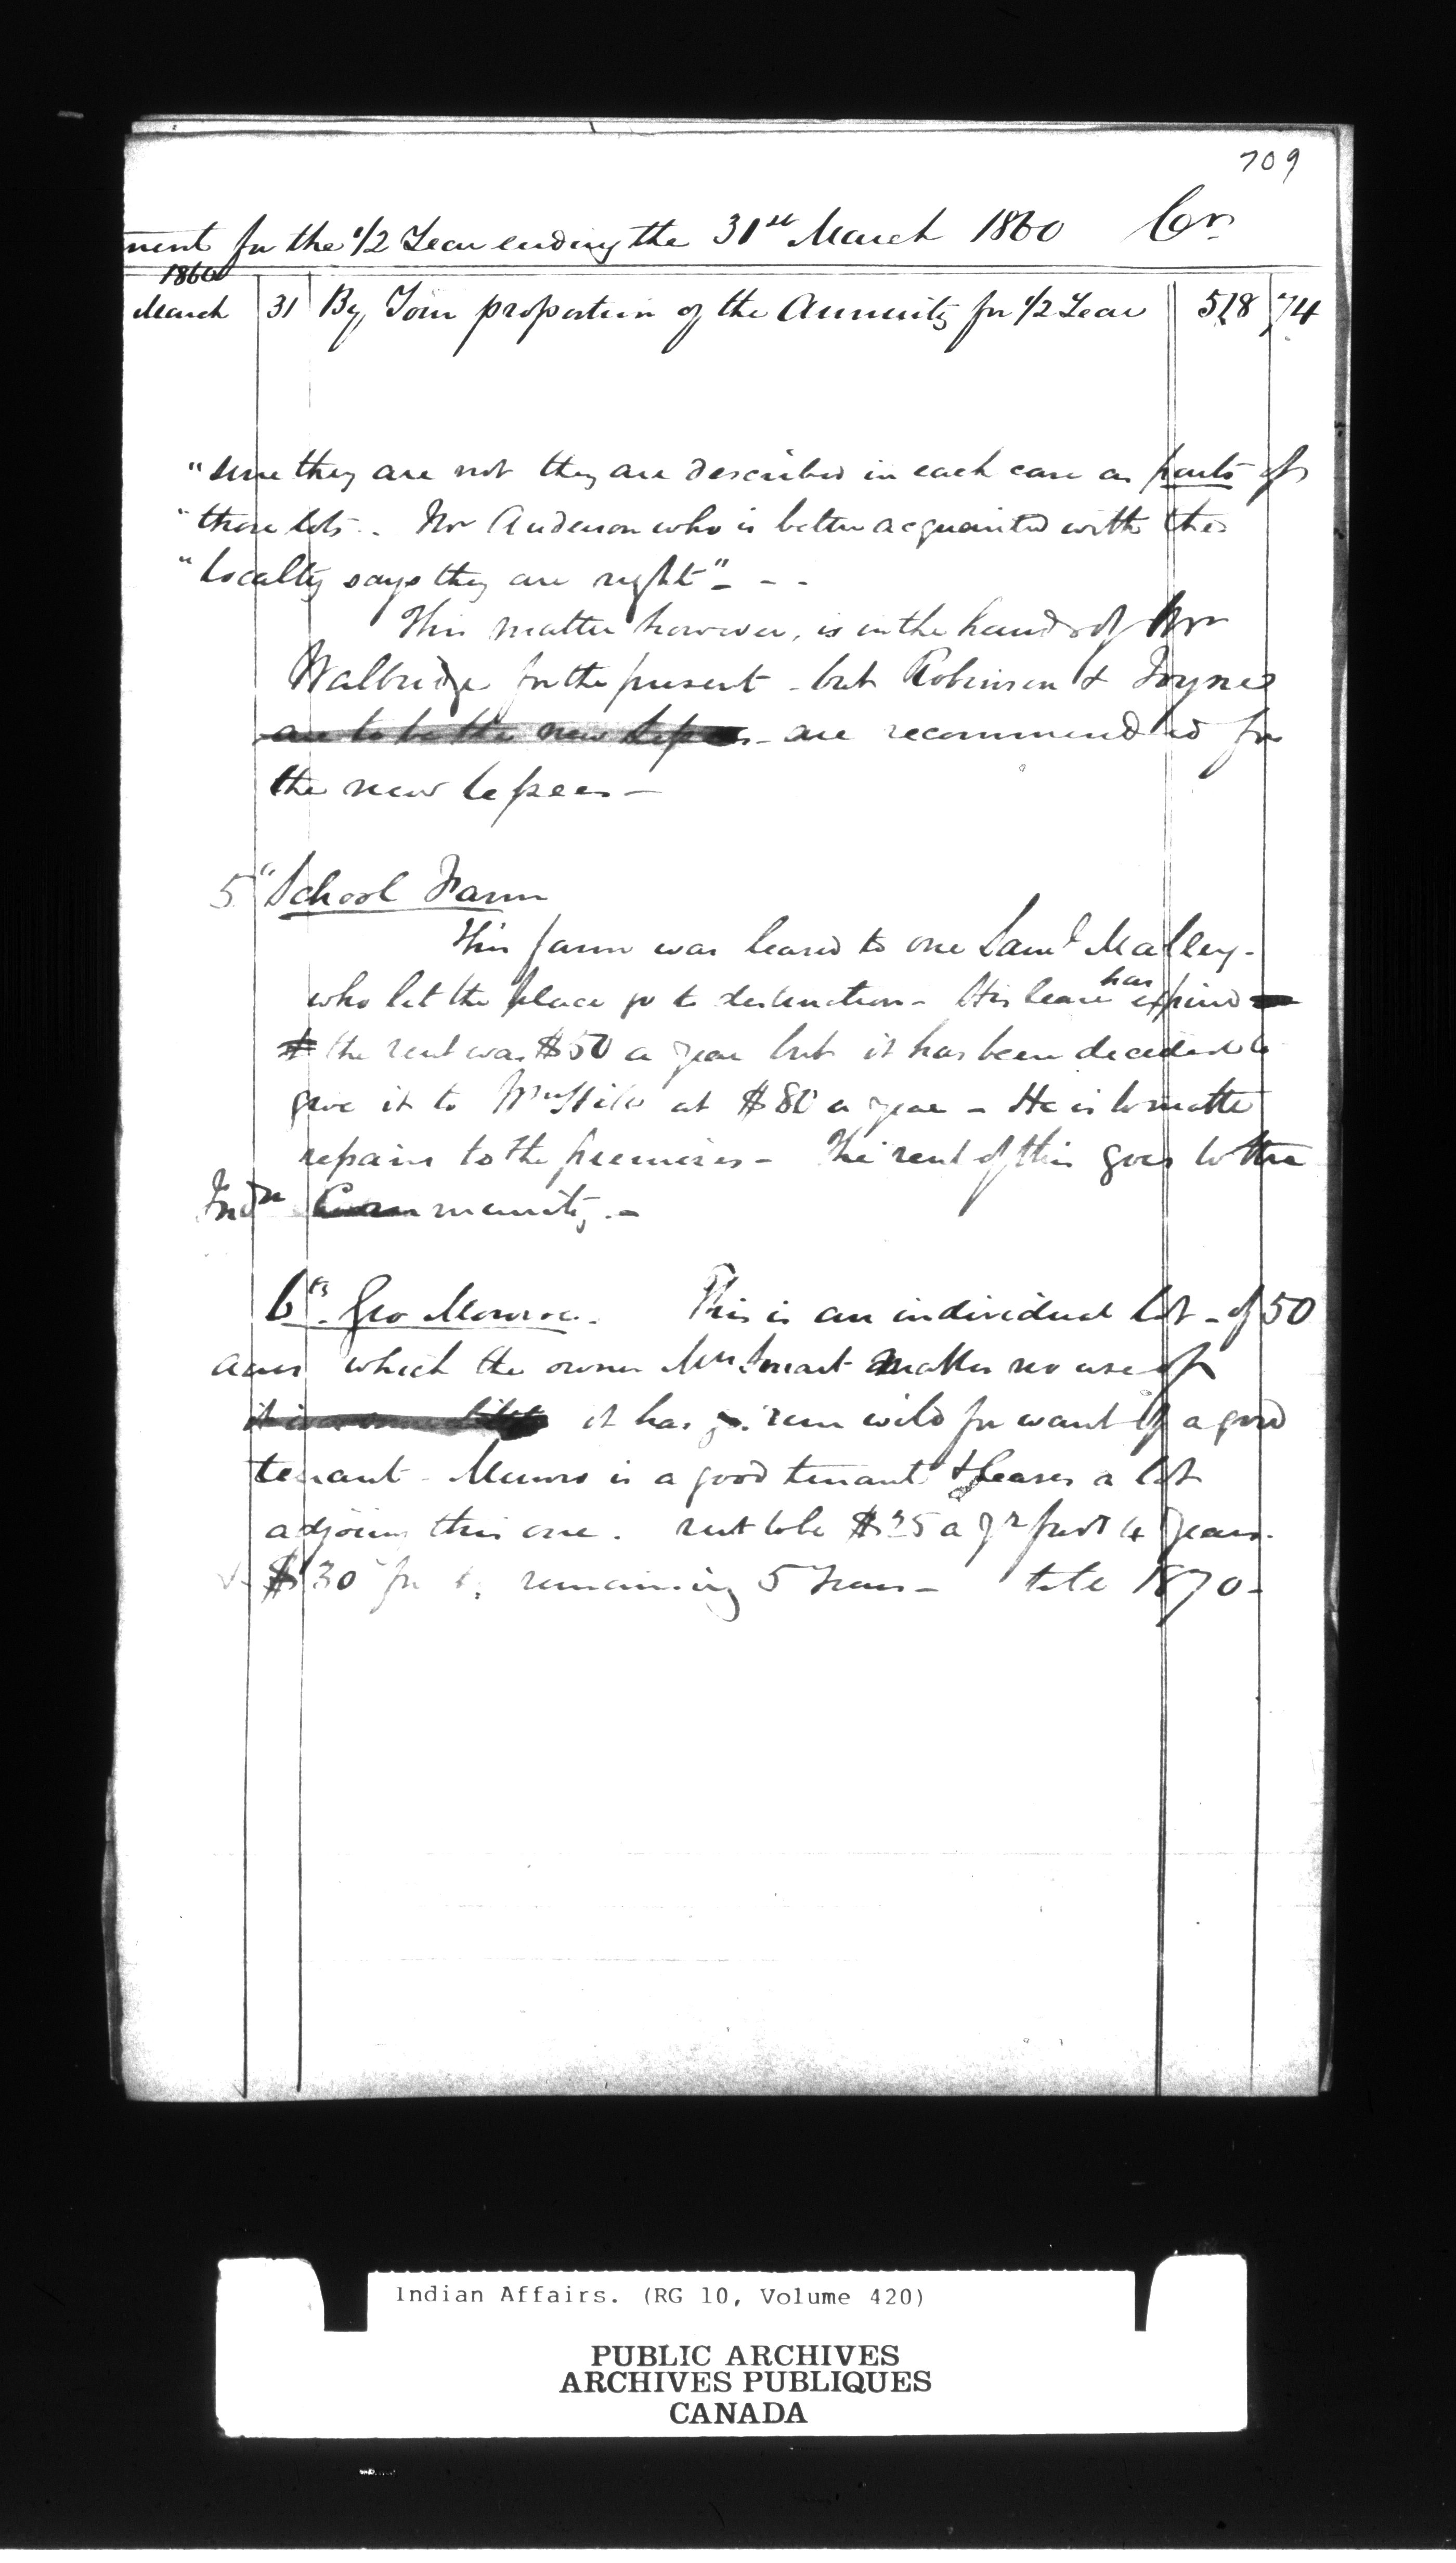 709
ment for the 1/2 Year ending the 31st March 1860 Cr.
1860
March 31 By Your proportion of the Annuity for 1/2 Year 518 74
"sure they are not they are described in each case as parts of
"those lots. Mr Anderson who is better acquainted with the
"locality says they are right" - -
This matter however, is in the hands of Mr
Walbridge for the present - but Robinson &
are to be the new Lessees - are recommended for
the new lessees -
5" School Farm
This farm was leased to one Saml Malley -
who let the place go to destruction - His lease has expired
the rent was $50 a year but it has been decided to
give it to Wm at $80 a year - He is to make
repairs to the premises - The rent of this goes to the
Indn Community. -
6th. Geo Monroe. This is an individual lot - of 50
acres which the owner Mrs Smart makes no use of
it has run wild for want of a good
tenant - Munro is a good tenant & leases a lot
adjoining this one. rent to be $25 a yr first 4 years.
$30 for remaining 5 years - title 1870 -
Indian Affairs. (RG 10, Volume 420)
PUBLIC ARCHIVES
ARCHIVES PUBLIQUES
CANADA